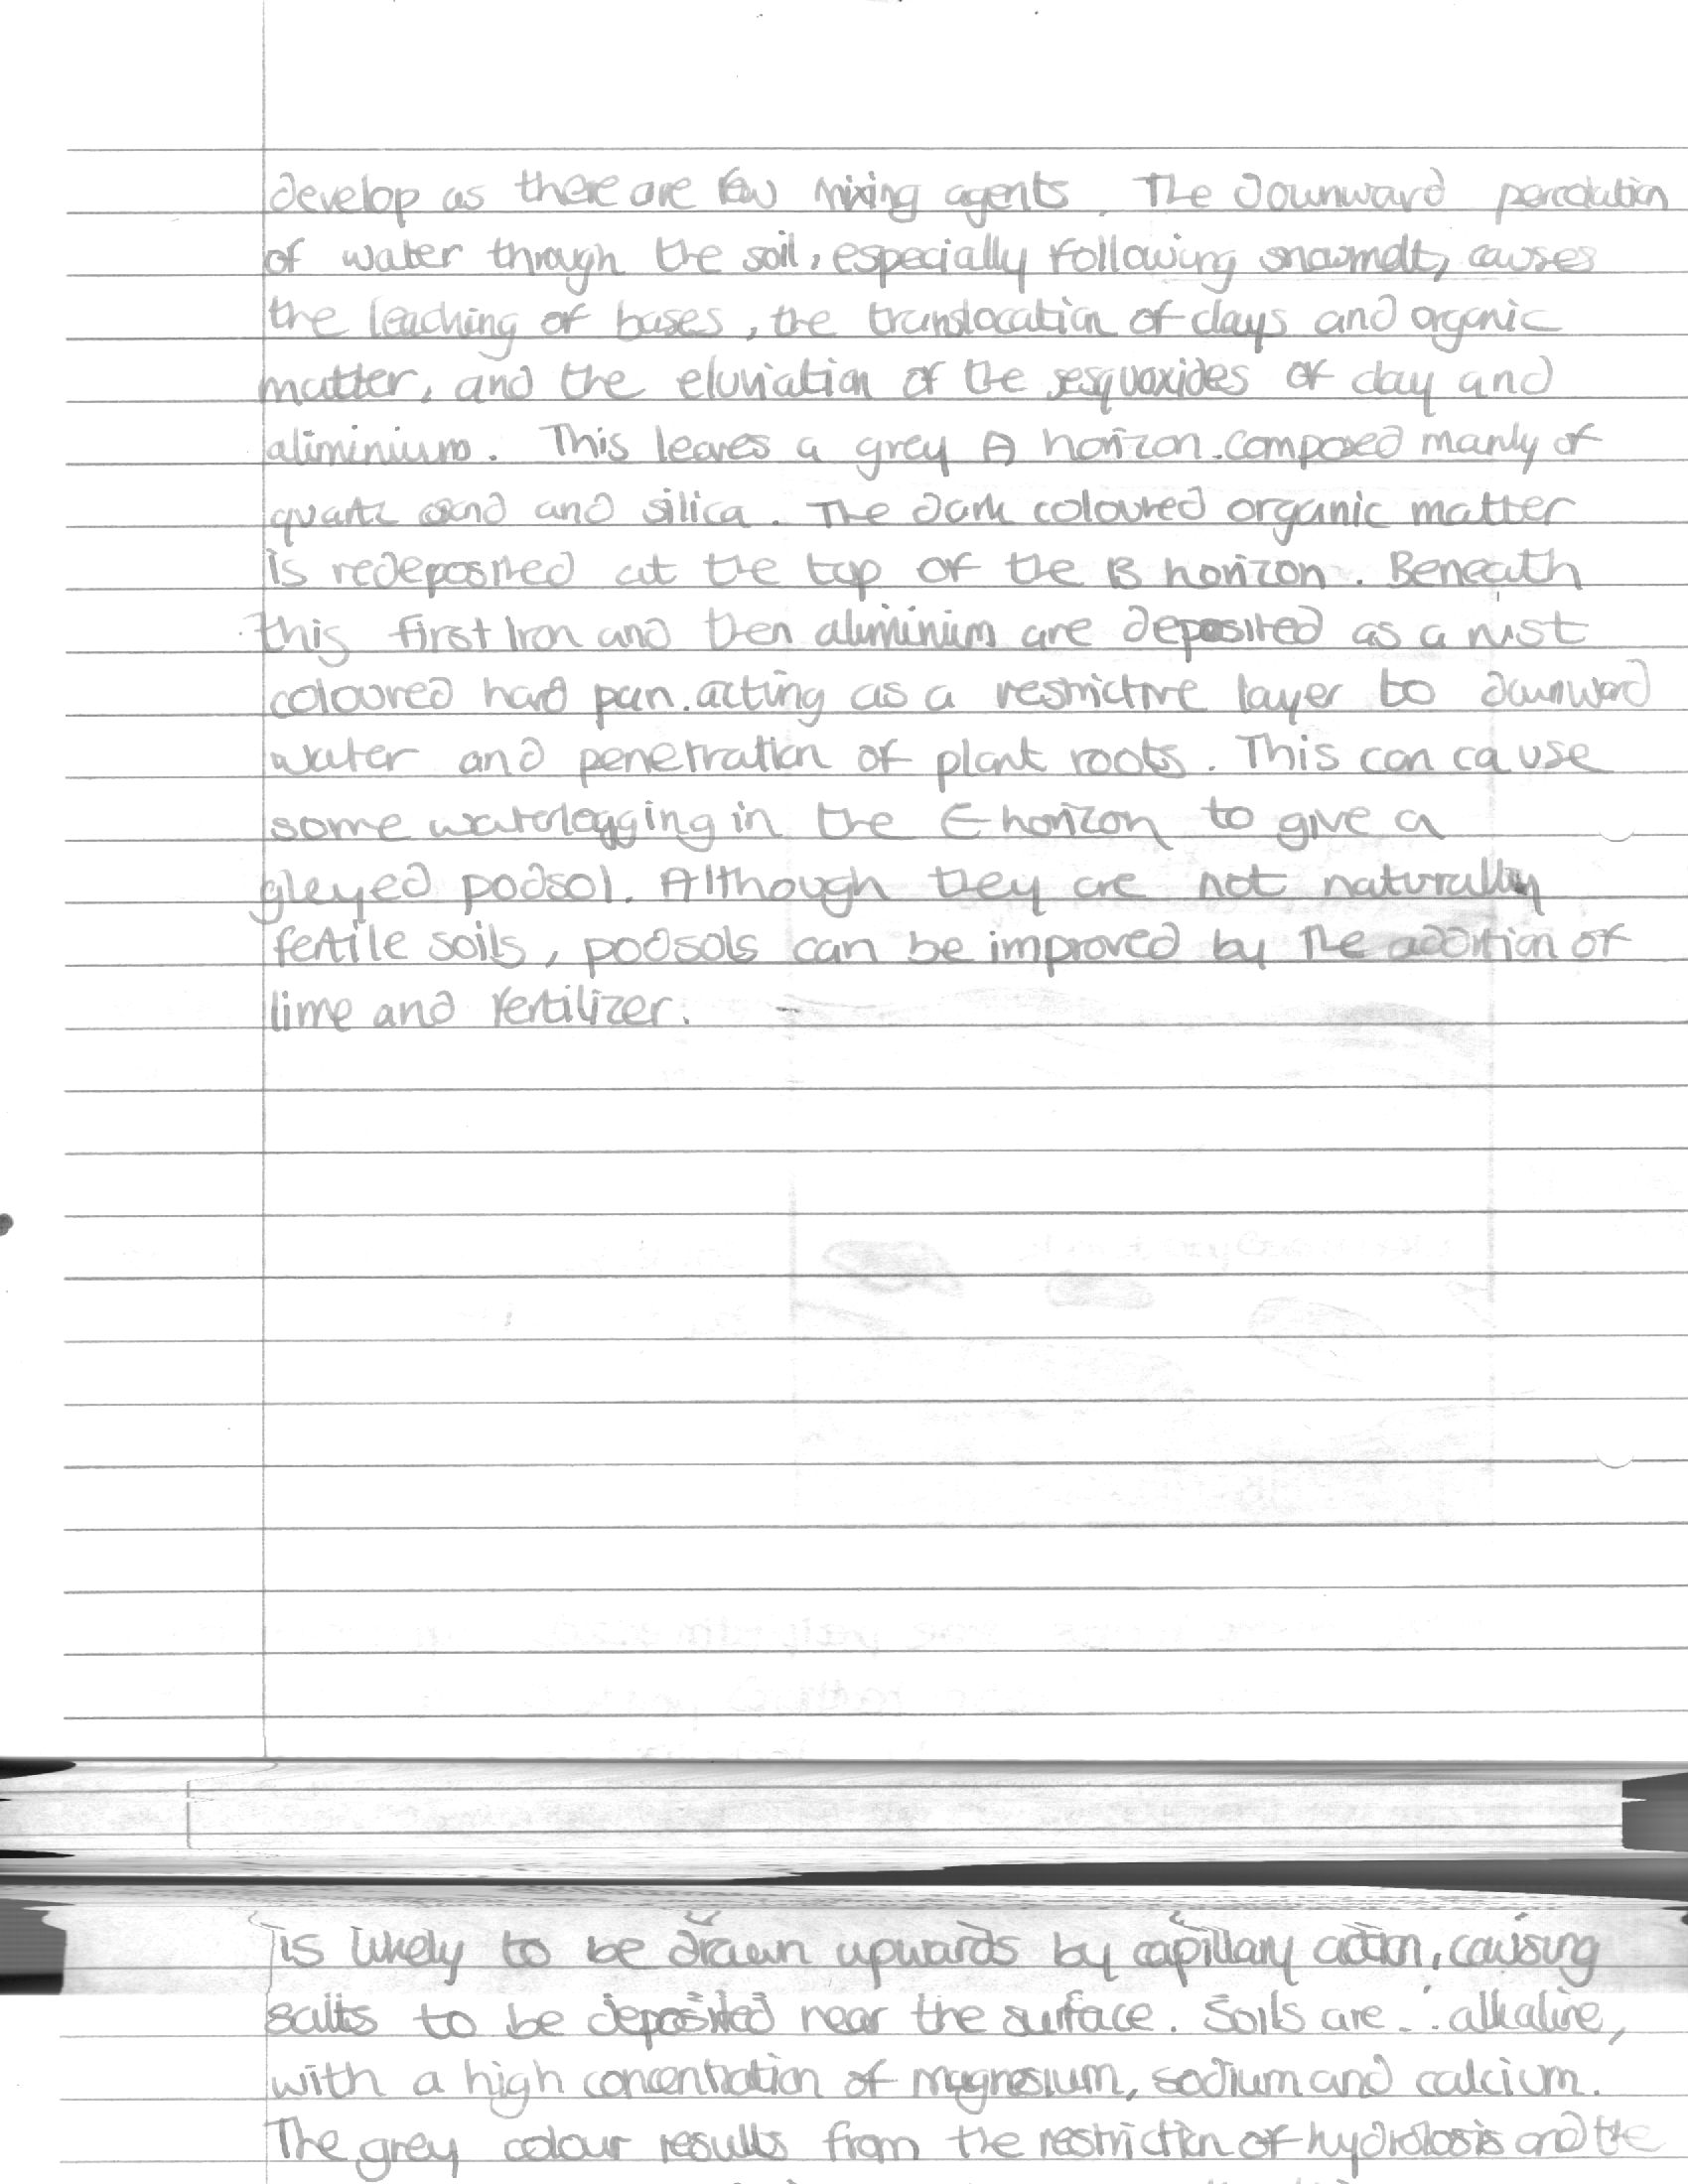 develop as there are few mixing agents. The downward percolation
of water through the soil, especially following snowmelt, causes
the leaching of bases, the translocation of clays and organic
matter, and the eluviation of the sesquoxides of clay and
aliminium. This leaves a grey A horizon. composed manly of
quartz sand and silica. The dark coloured organic matter
is redeposited at the top of the B horizon. Beneath
this first Iron and then aluminium are deposited as a rust
coloured hard pan. acting as a restrictive layer to downward
water and penetration of plant roots. This can cause
some waterlogging in the E horizon to give a
gleyed podsol. Although they are not naturally
fertile soils, podsols can be improved by the addition of
lime and fertilizer.
is likely to be drawn upwards by capillary action, causing
salts to be deposited near the surface. Soils are ∴ alkaline,
with a high concentration of magnesium, sodium and calcium.
The grey colour results from the restriction of hydrolosis and the